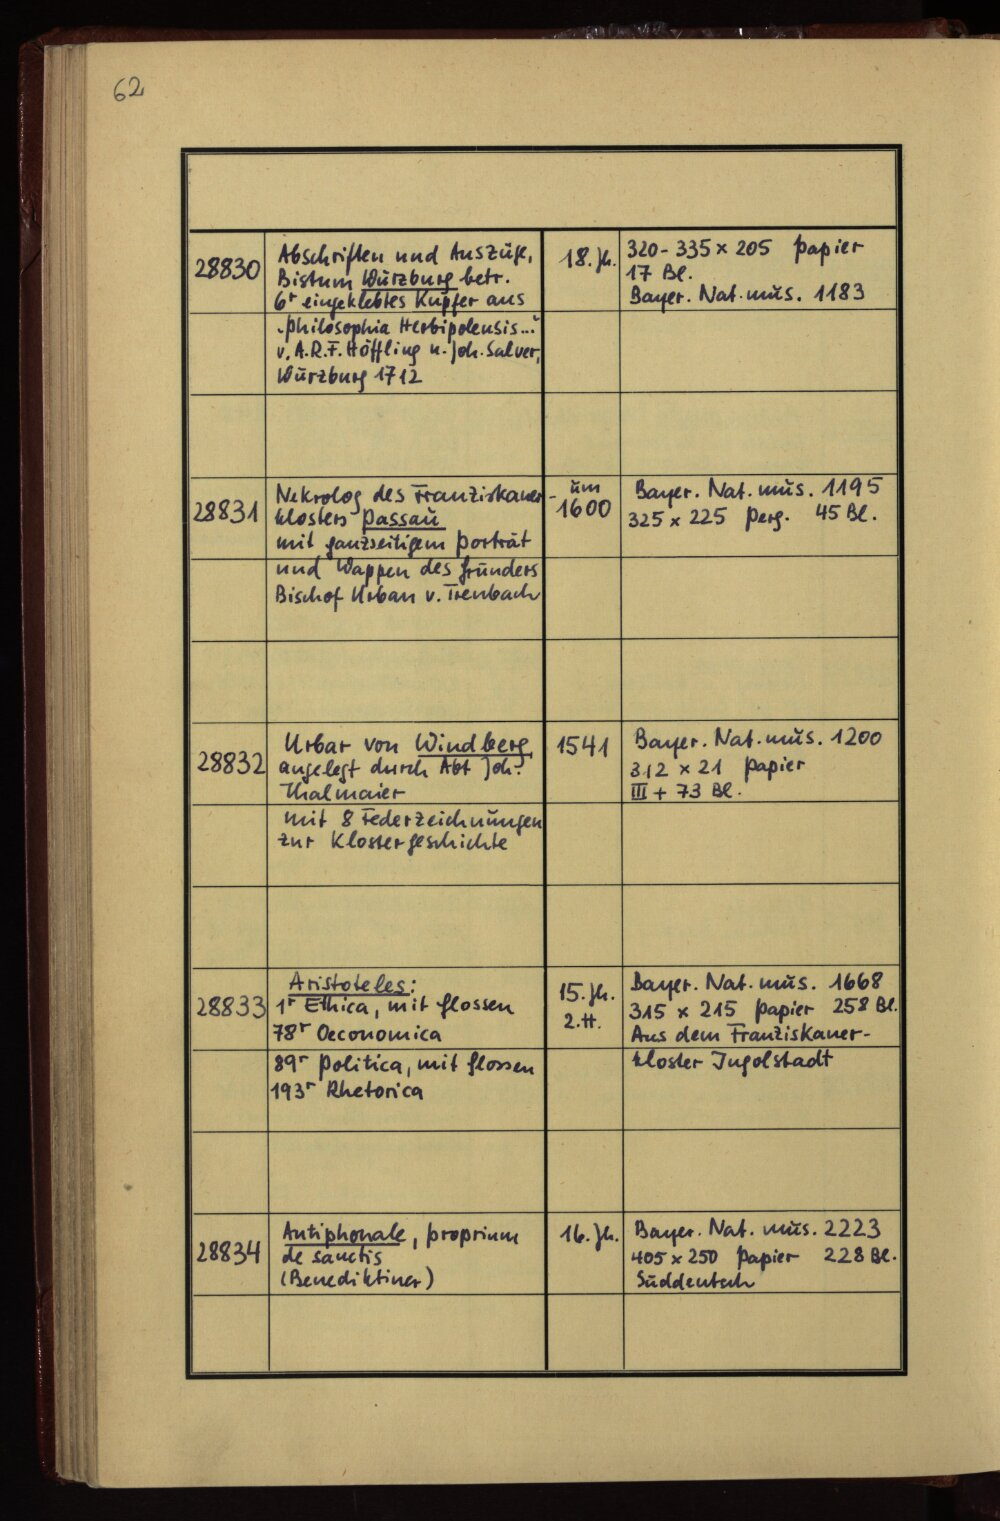 62
28830
Abschriften und Auszüge,
Bistum Würzburg betr.
6r eingeklebtes Kupfer aus
"Philosophia Herbipolensis..."
v. A.R.F. Höffling u. Joh. Salver,
Würzburg 1712
18. Jh.
320-335 x 205 Papier
17 Bl.
Bayer. Nat. mus. 1183
28831
Nekrolog des Franziskaner-
klosters Passau
mit ganzseitigem Porträt
und Wappen des Gründers
Bischof Urban v. Trenbach
um
1600
Bayer. Nat. mus. 1195
325 x 225 Perg. 45 Bl.
28832
Urbar von Windberg,
angelegt durch Abt Joh.
Thalmaier
mit 8 Federzeichnungen
zur Klostergeschichte
1541
Bayer. Nat. mus. 1200
312 x 21 Papier
III + 73 Bl.
28833
Aristoteles:
1r Ethica, mit Glossen
78r Oeconomica
89r Politica, mit Glossen
193r Rhetorica
15. Jh.
2. H.
Bayer. Nat. mus. 1668
315 x 215 Papier 258 Bl.
Aus dem Franziskaner-
kloster Ingolstadt
28834
Antiphonale, proprium
de sanctis
(Benediktiner)
16. Jh.
Bayer. Nat. mus. 2223
405 x 250 Papier 228 Bl.
Süddeutsch